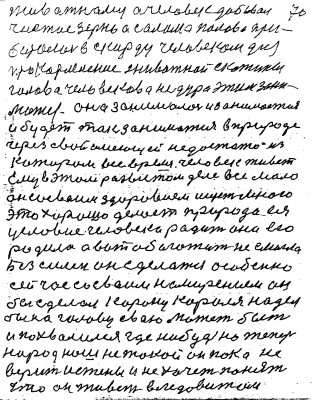 животному а человек добывал 70
чистое зерно а салома полова при-
биралось в скирду человеком для
прокармление животной скотины
голова человекова не дура этим зани-
мать. она занималась и занимается
и будет так заниматся в природе
через свой имеющей недостаток из
которым все время человек живет
ему в этом развитом деле все мало
он со своим здоровием ищет много
это хорошо делает природа ея
целовие человека радит она его
родила а вот обагатит не смогла
Без силен он сделался особенно
сейчас со своим намерением он
бы сделал карону короля надел
бы на голову сваю может быть
и похвалился где нибудь но теперь
народ наш не такой он пока не
верит истены и не хочет понят
что он живет в ледовитом